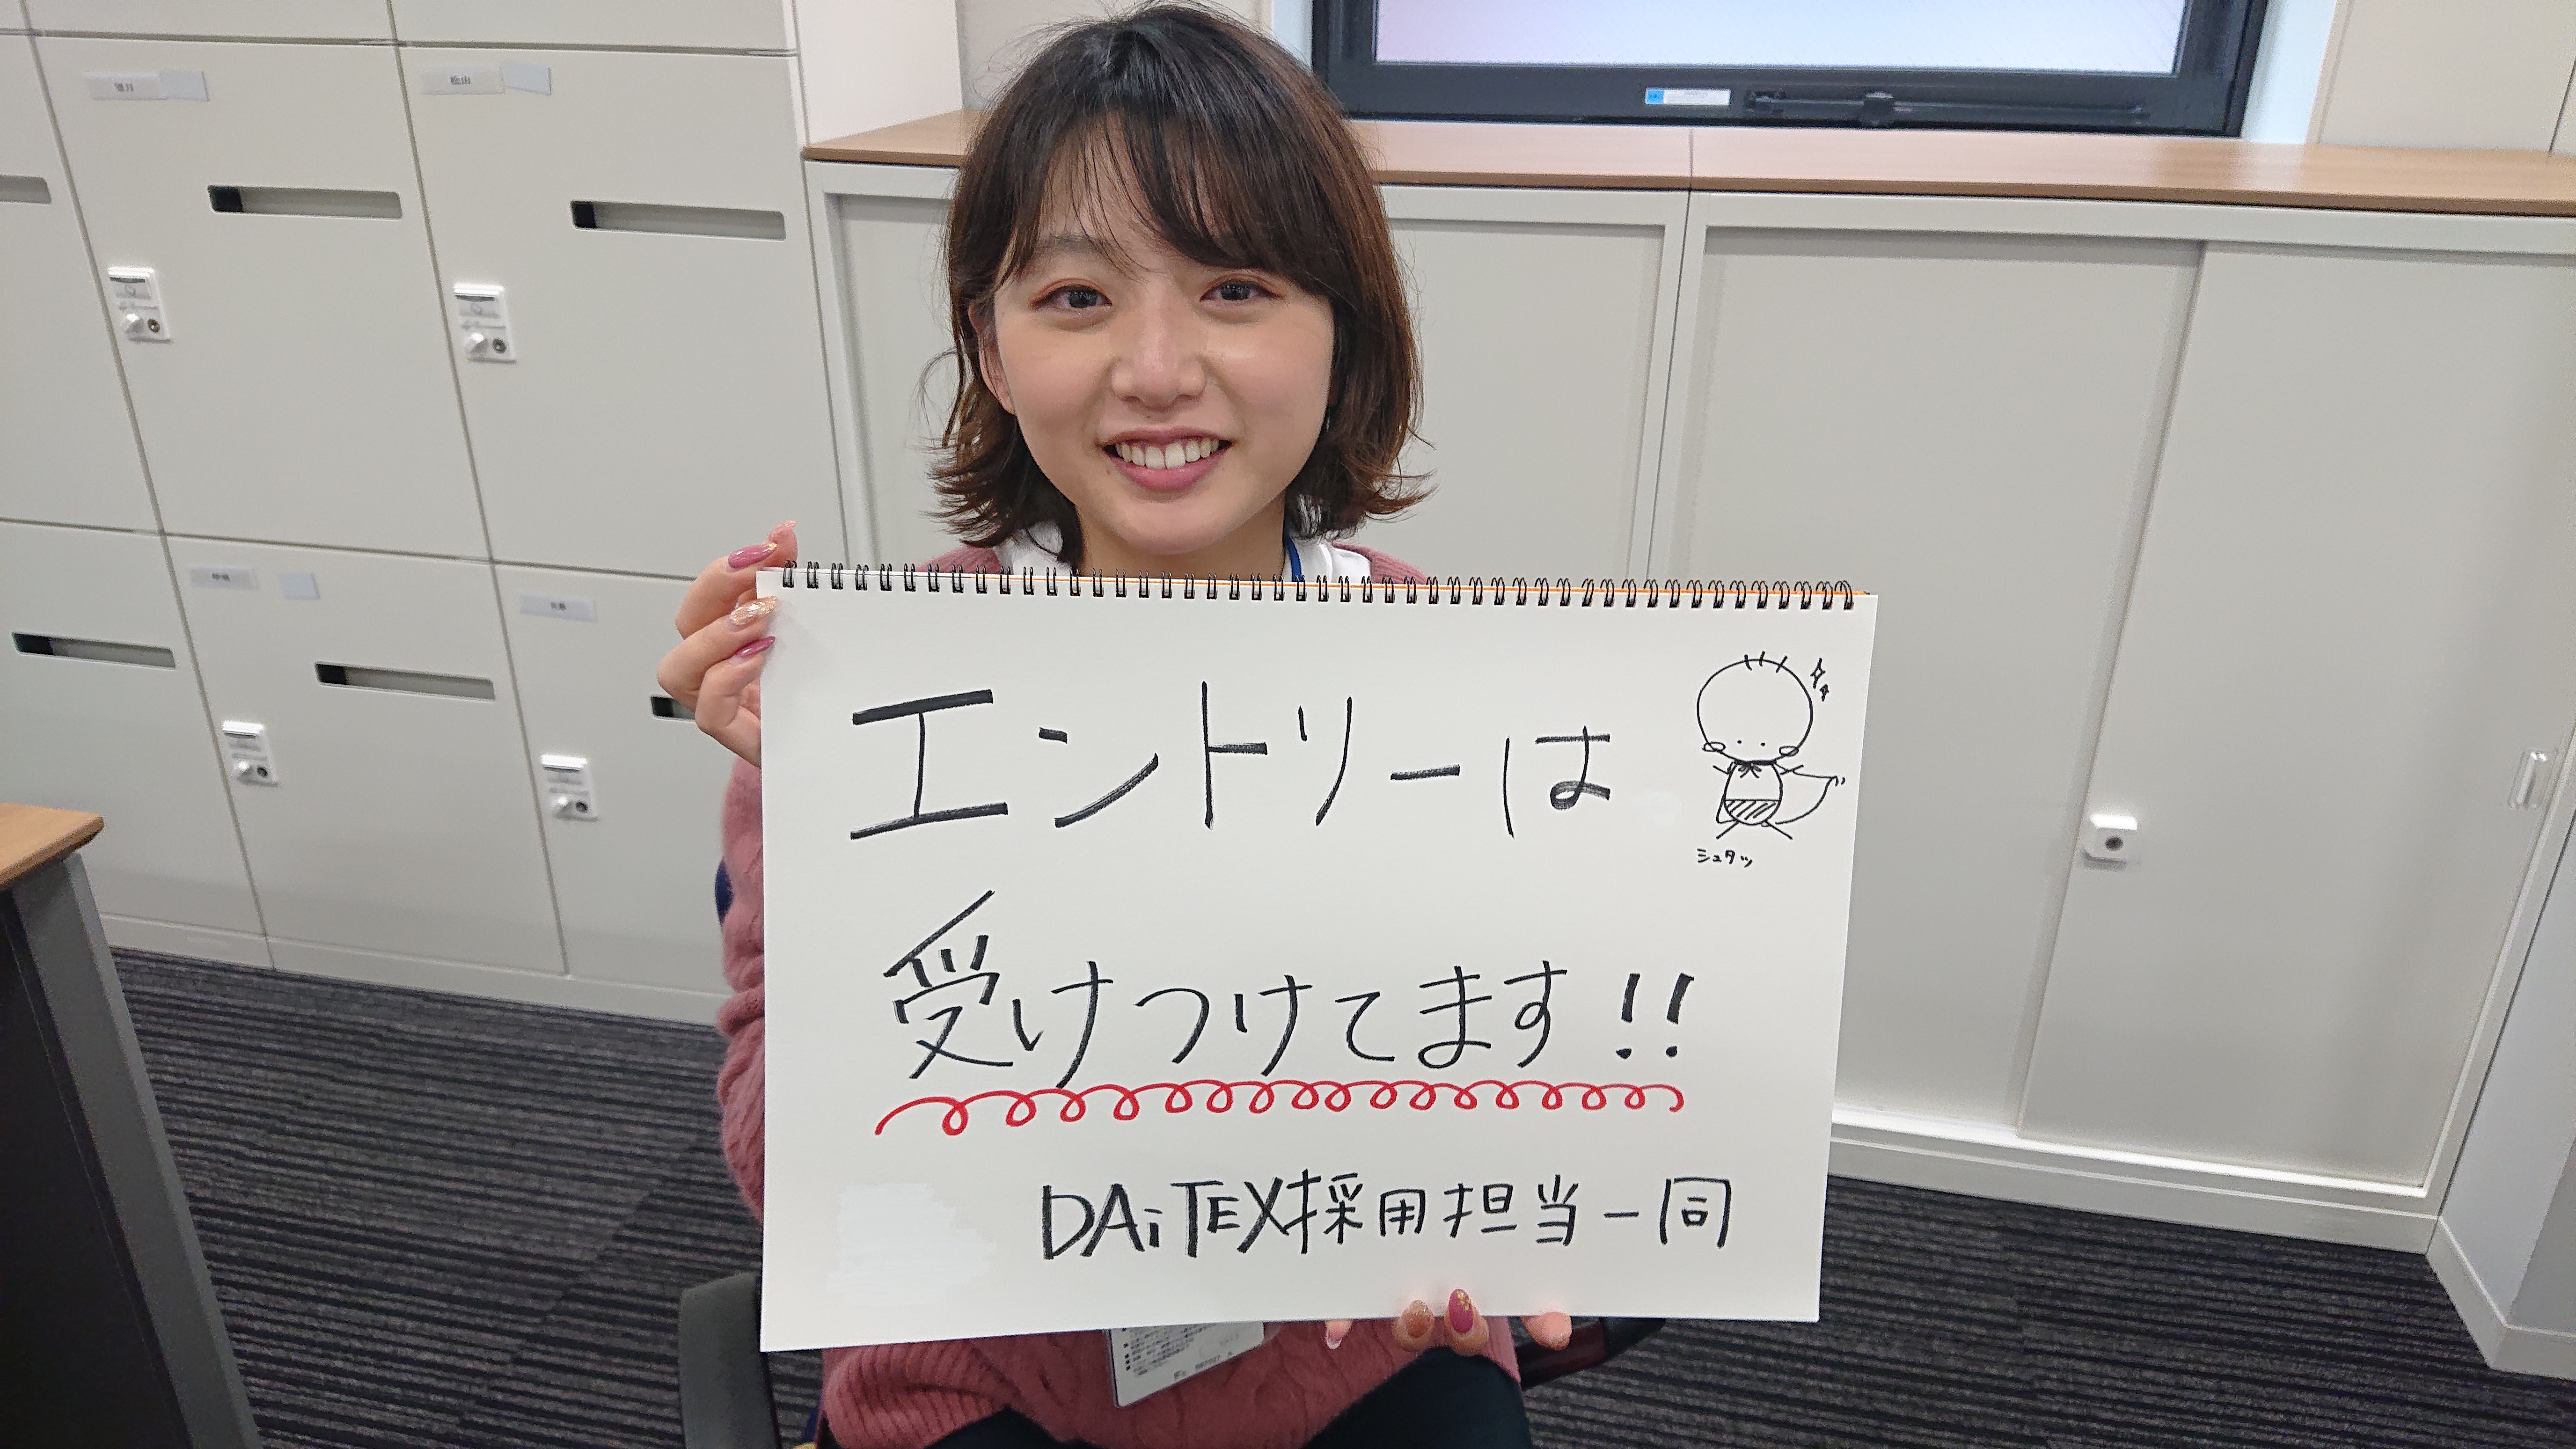 エントリーは
シュタッ
受けつけてます!!
DAiTEX採用担当一同